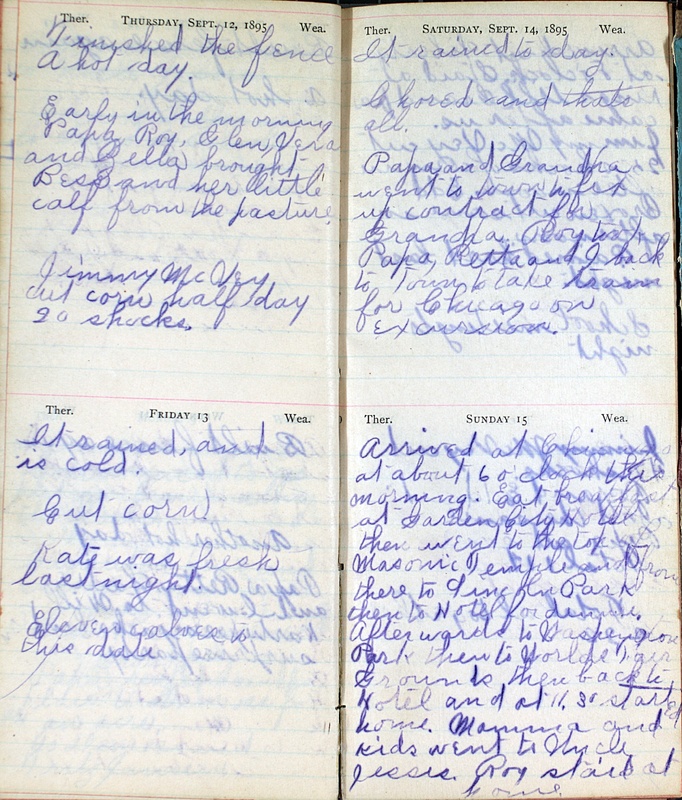 Ther. THURSDAY, SEPT. 12, 1895 Wea.
Finished the fence
A hot day.
Early in the morning
Papa, Roy, Glen, Vera
and Zella brought
Bess and her little
calf from the pasture.
Jimmy McVey
cut corn half day
20 shocks.
Ther. FRIDAY 13 Wea.
It rained, and
is cold.
Cut corn
Kate was fresh
last night.
Eleven calves to
this date
Ther. SATURDAY, SEPT. 14, 1895 Wea.
It rained to day.
Chored and thats
all.
Papa and Grandma
went to town to fix
up contract for
Grandma. Roy took
Papa, Retta and I back
to Town to take train
for Chicago on
Excursion.
Ther. SUNDAY 15 Wea.
Arrived at Chicago
at about 6 o clock this
morning. Eat breakfast
at Garden City Hotel
then went to the top of
Masonic Temple and from
there to Lincoln Park
then to Hotel for dinner.
Afterwards to Washington
Park then to Worlds Fair
Grounds then back to
Hotel and at 11.30 started
home. Mamma and
kids went to Uncle
Jesses. Roy staid at
home.